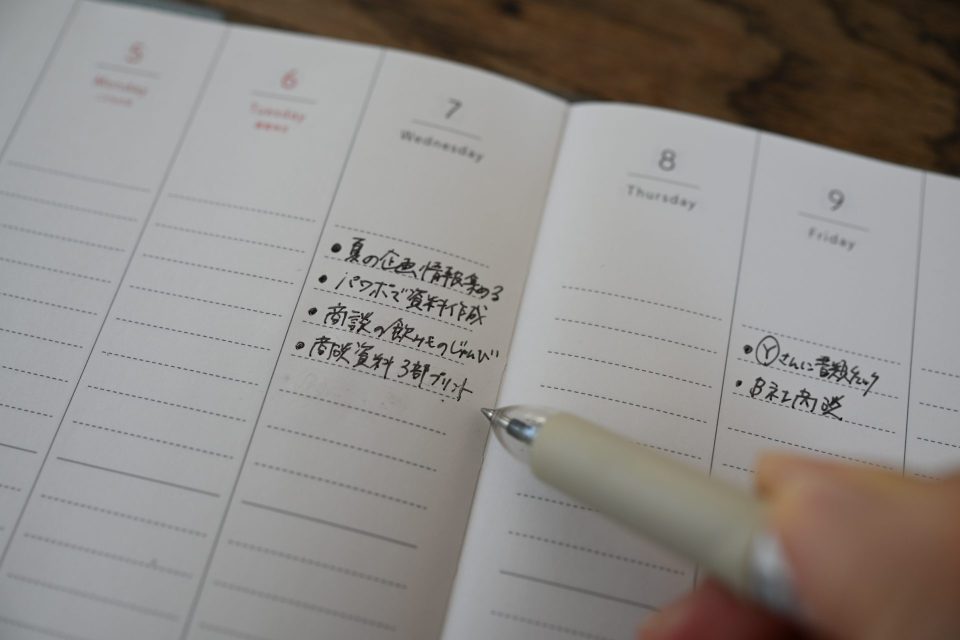 5
Monday
6
Tuesday
7
Wednesday
• 夏の企画、情報集める
• パワポで資料作成
• 商談の飲みもののじゅんび
• 商談資料 3部プリント
8
Thursday
9
Friday
• Ⓨさんに書類チェック
• B社と商談